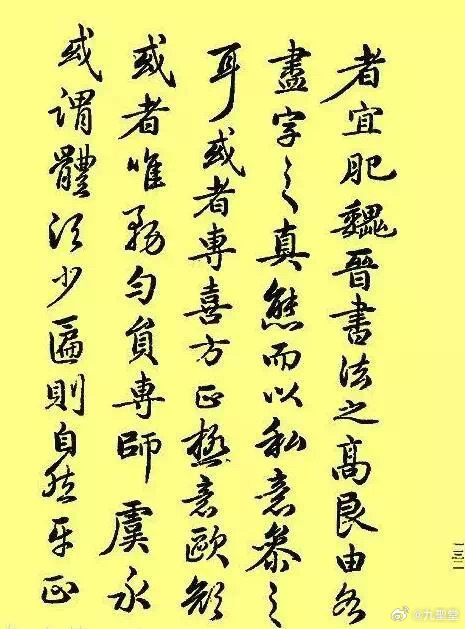 者宜肥魏晉書法之高良由各
盡字之真態而以私意參之
耳或者專喜方正極意歐顏
或者唯務勻員專師虞永
或謂體須少匾則自然平正